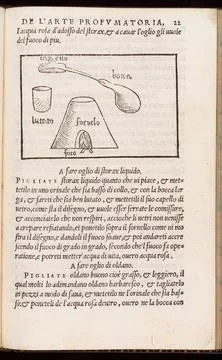 DE L'ARTE PROFVMATORIA, 22
l'acqua rosa d'adosso del storax, & a cauar l'oglio gli uuole
del fuoco di piu.
capello
boccia
lutato
fornelo
foco
A fare oglio di storax liquido.
PIGLIATE storax liquido quanto che ui piace, & met-
tetilo in uno orinale che sia basso di collo, & con la bocca lar
ga, & farete che sia ben lutato, & mettetili il suo capello di
uetro, come sta il disegno, & uuole esser serrate le comissure,
& acconciatelo che non respiri, accioche li uetri non uenisse
a crepare refiatando, et ponetilo sopra il fornello come ui mo
stra il disegno, e dandoli il fuoco soaue, & poi andarete accre
scendo il fuoco di grado in grado, secondo che'l fuoco fa ope-
ratione, e potreti metter acqua di uita, ouero acqua rosa.
A fare oglio di oldano.
PIGLIATE oldano buono cioè grasso, & leggiero, il
qual molti lo adimandano oldano barbaresco, & tagliatelo
in pezzi a modo di faua, & metetilo ne l'orinale che sia bas-
so: & ponetelí de l'acqua rosa dentro, ouero ne la bocca con